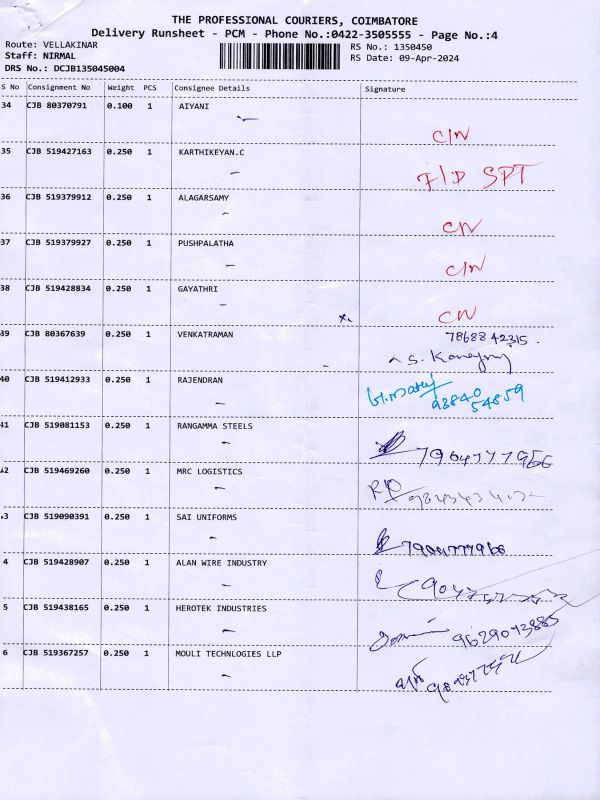 THE PROFESSIONAL COURIERS, COIMBATORE
Delivery Runsheet - PCM - Phone No.:0422-3505555 - Page No.:4
Route: VELLAKINAR RS No.: 1350450
Staff: NIRMAL RS Date: 09-Apr-2024
DRS No.: DCJB135045004
S No Consignment No Weight PCS Consignee Details Signature
34 CJB 80370791 0.100 1 AIYANI
C/N
35 CJB 519427163 0.250 1 KARTHIKEYAN.C
F/D SPT
36 CJB 519379912 0.250 1 ALAGARSAMY
C/N
37 CJB 519379927 0.250 1 PUSHPALATHA
C/N
38 CJB 519428834 0.250 1 GAYATHRI
C/N
39 CJB 80367639 0.250 1 VENKATRAMAN 7868842315.
S.
40 CJB 519412933 0.250 1 RAJENDRAN
93840
54859
41 CJB 519081153 0.250 1 RANGAMMA STEELS
7904777966
42 CJB 519469260 0.250 1 MRC LOGISTICS
.3 CJB 519090391 0.250 1 SAI UNIFORMS
7904777966
4 CJB 519428907 0.250 1 ALAN WIRE INDUSTRY
5 CJB 519438165 0.250 1 HEROTEK INDUSTRIES
9629013885
6 CJB 519367257 0.250 1 MOULI TECHNLOGIES LLP